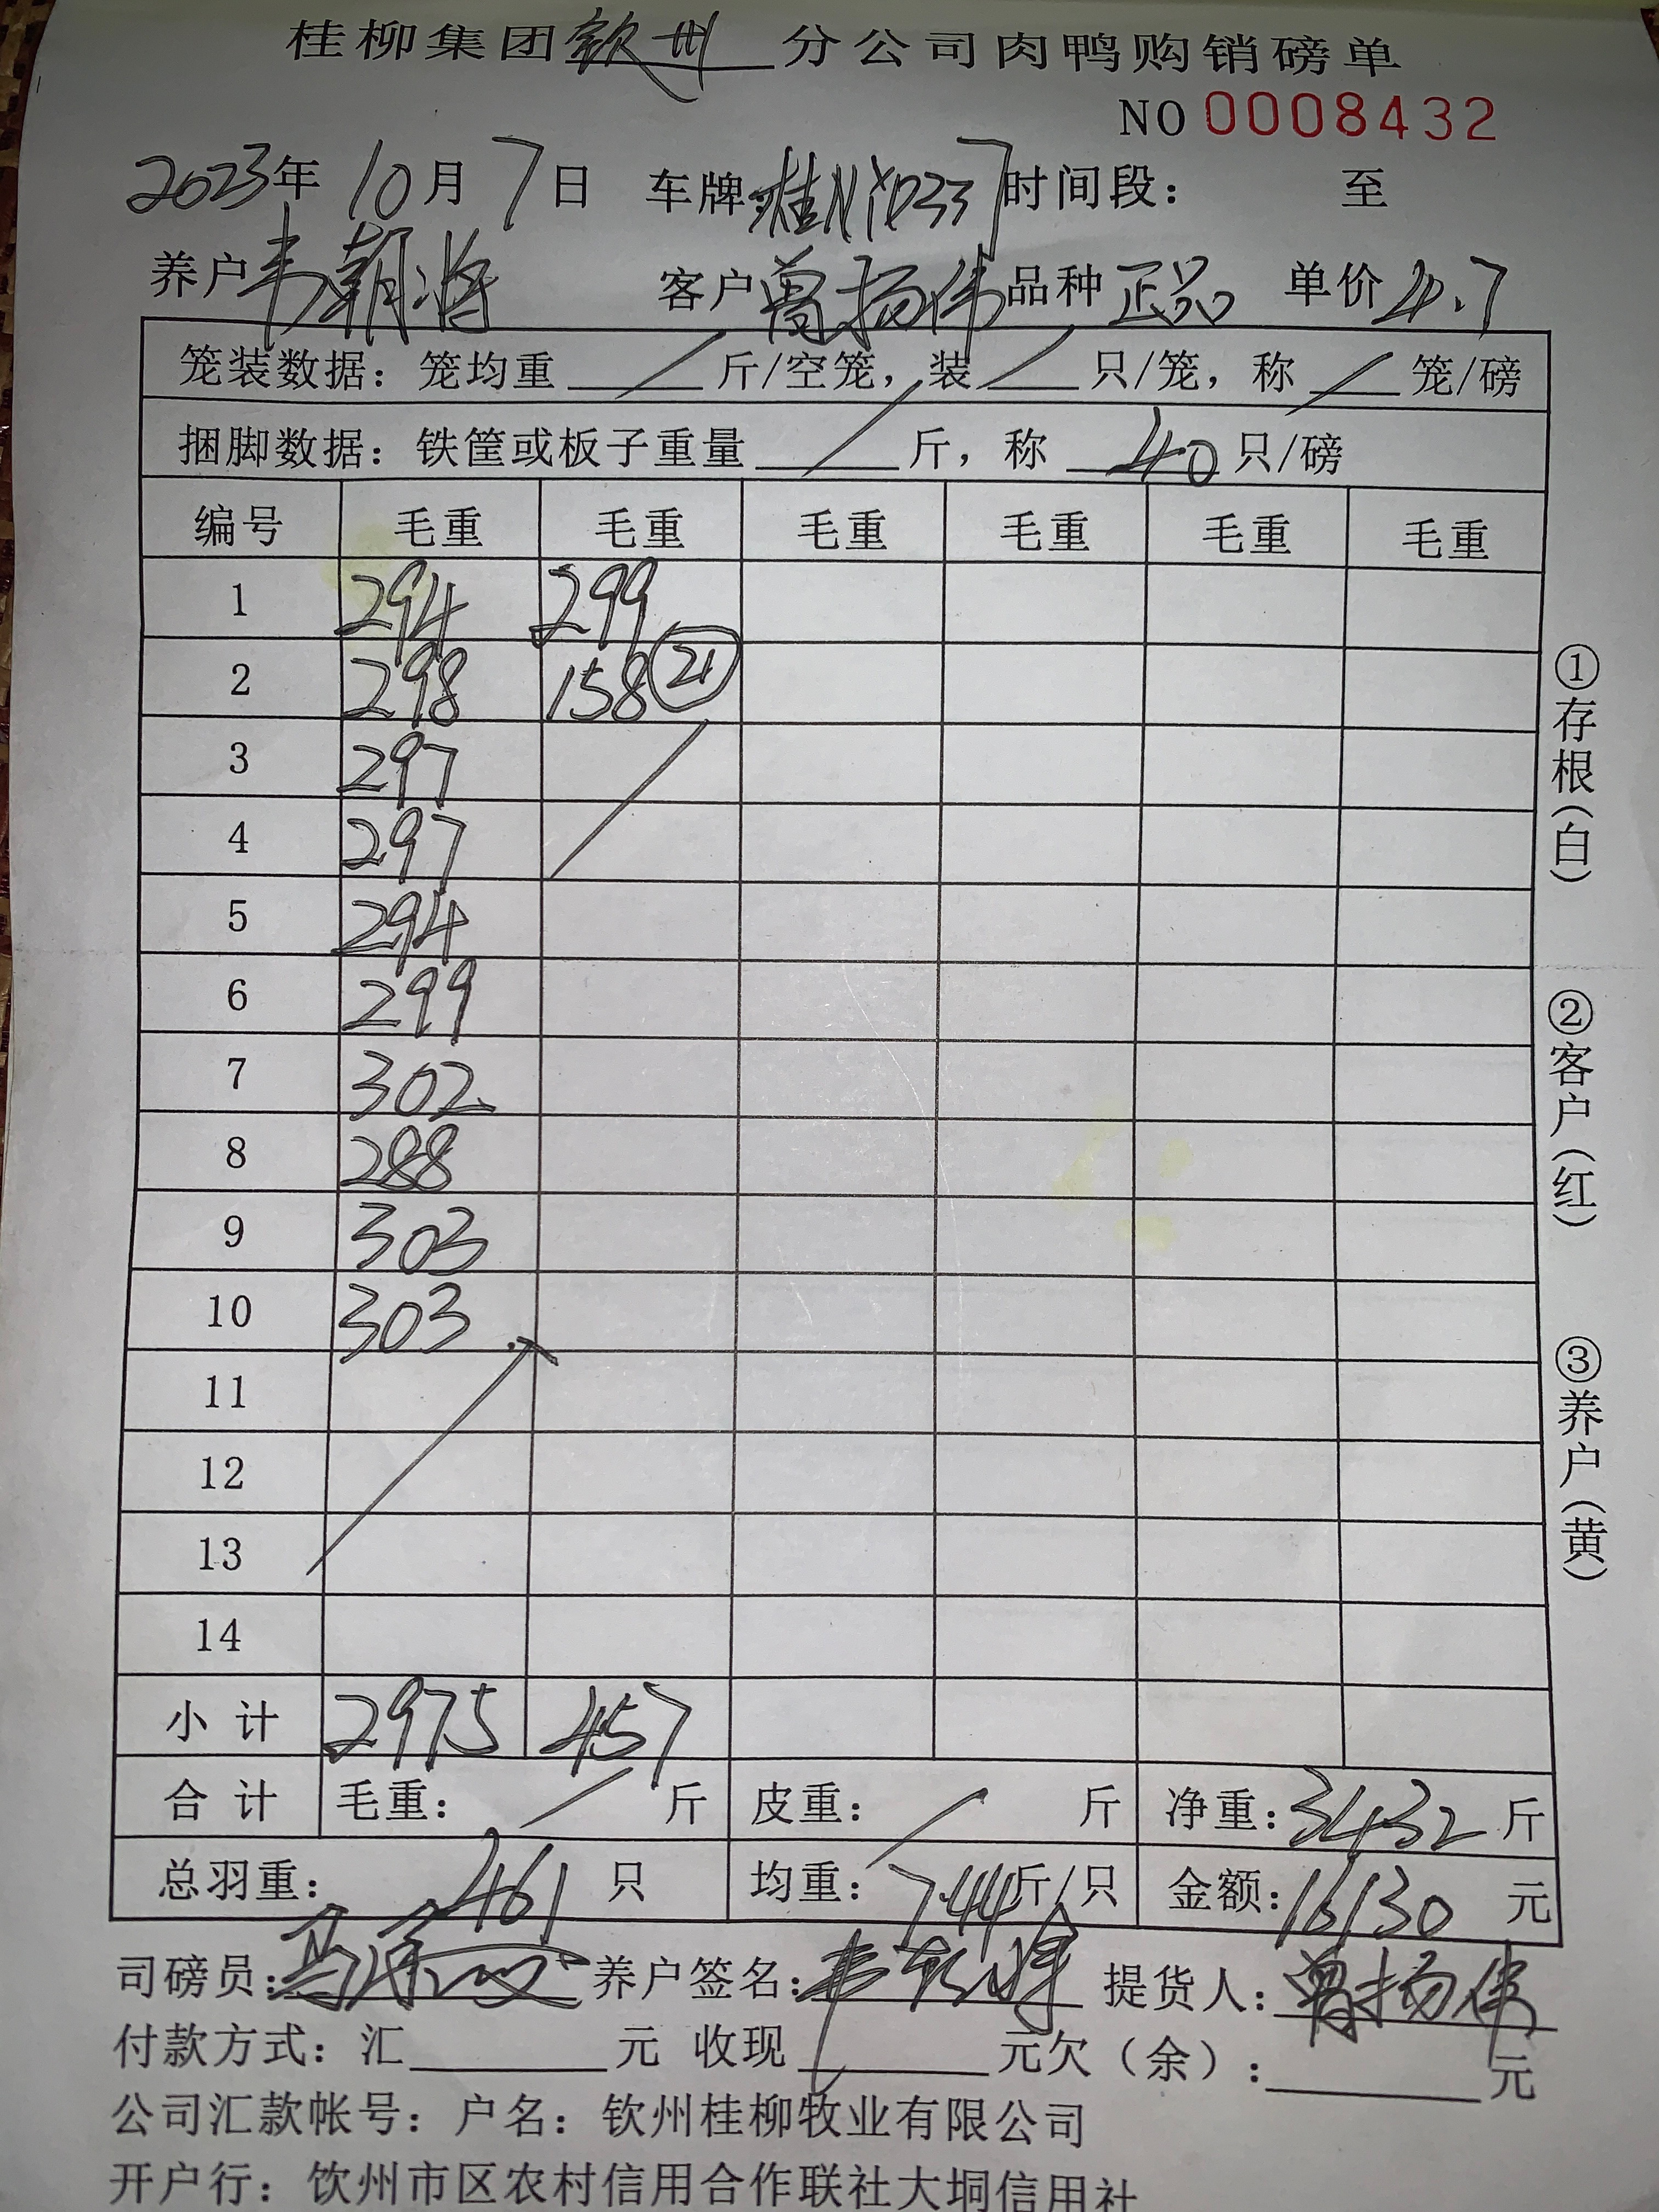 桂柳集团钦州分公司肉鸭购销磅单
NO 0008432
2023年10月7日 车牌:桂NXD337 时间段: 至
养户韦朝将 客户曾扬伟 品种正品 单价4.7
笼装数据:笼均重 / 斤/空笼,装 / 只/笼,称 / 笼/磅
捆脚数据:铁筐或板子重量 / 斤,称 40 只/磅
编号 毛重 毛重 毛重 毛重 毛重 毛重
1 294 299
2 298 158 21
3 297
4 297
5 294
6 299
7 302
8 288
9 303
10 303
11
12
13
14
小计 2975 457
合计 毛重: / 斤 皮重: / 斤 净重:3432斤
总羽重: 461 只 均重:7.44斤/只 金额:16130 元
司磅员: 养户签名:韦朝将 提货人:曾扬伟
付款方式:汇______元 收现______元欠(余):______元
公司汇款帐号:户名:钦州桂柳牧业有限公司
开户行:饮州市区农村信用合作联社大垌信用社
①存根(白)
②客户(红)
③养户(黄)